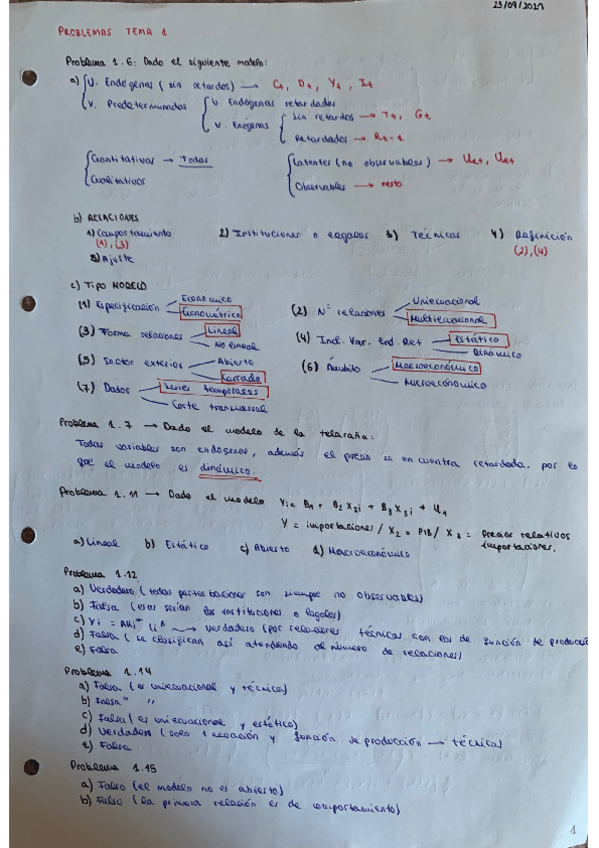 23/09/2021
PROBLEMAS TEMA 1
Problema 1.6: Dado el siguiente modelo:
a) V. Endógenas (sin retardos) → Ct, Dt, Yt, It
V. Predeterminadas
V. Endógenas retardadas
V. Exógenas
Sin retardos → Tt, Gt
Retardados → Rt-1
Cuantitativos → Todas
Cualitativos
Latentes (no observables) →
Observables → resto
b) RELACIONES
1) Comportamiento 2) Instituciones o legales 3) Técnicas 4) Definición
(1), (3) (2), (4)
5) Ajuste
c) TIPO MODELO
(1) Especificación
Económico
Econométrico
(2) Nº relaciones
Uniecuacional
Multiecuacional
(3) Forma relaciones
Lineal
No lineal
(4) Incl. Var. End. Ret
Estático
Dinámico
(5) Sector exterior
Abierto
Cerrado
(6) Ámbito
Macroeconómico
Microeconómico
(7) Datos
Series temporales
Corte transversal
Problema 1.7 → Dado el modelo de la telaraña:
Todas variables son endógenas, además el precio se encuentra retardada, por lo
que el modelo es dinámico.
Problema 1.11 → Dado el modelo Yi = B1 + B2 X2i + B3 X3i + U1
Y = importaciones / X2 = PIB / X3 = Precios relativos
importaciones.
a) Lineal b) Estático c) Abierto d) Macroeconómico
Problema 1.12
a) Verdadero (todas perturbaciones son siempre no observables)
b) Falsa (esas serían las instituciones o legales)
c) verdadero (por relaciones técnicas con las de función de producci
d) Falsa (se clasifican así atendiendo al número de relaciones)
e) Falsa
Problema 1.14
a) Falsa (es uniecuacional y técnica)
b) Falsa " "
c) Falsa (es uniecuacional y estático)
d) Verdadera (solo 1 ecuación y función de producción → técnica)
e) Falsa
Problema 1.15
a) Falso (el modelo no es abierto)
b) Falso (la primera relación es de comportamiento)
1